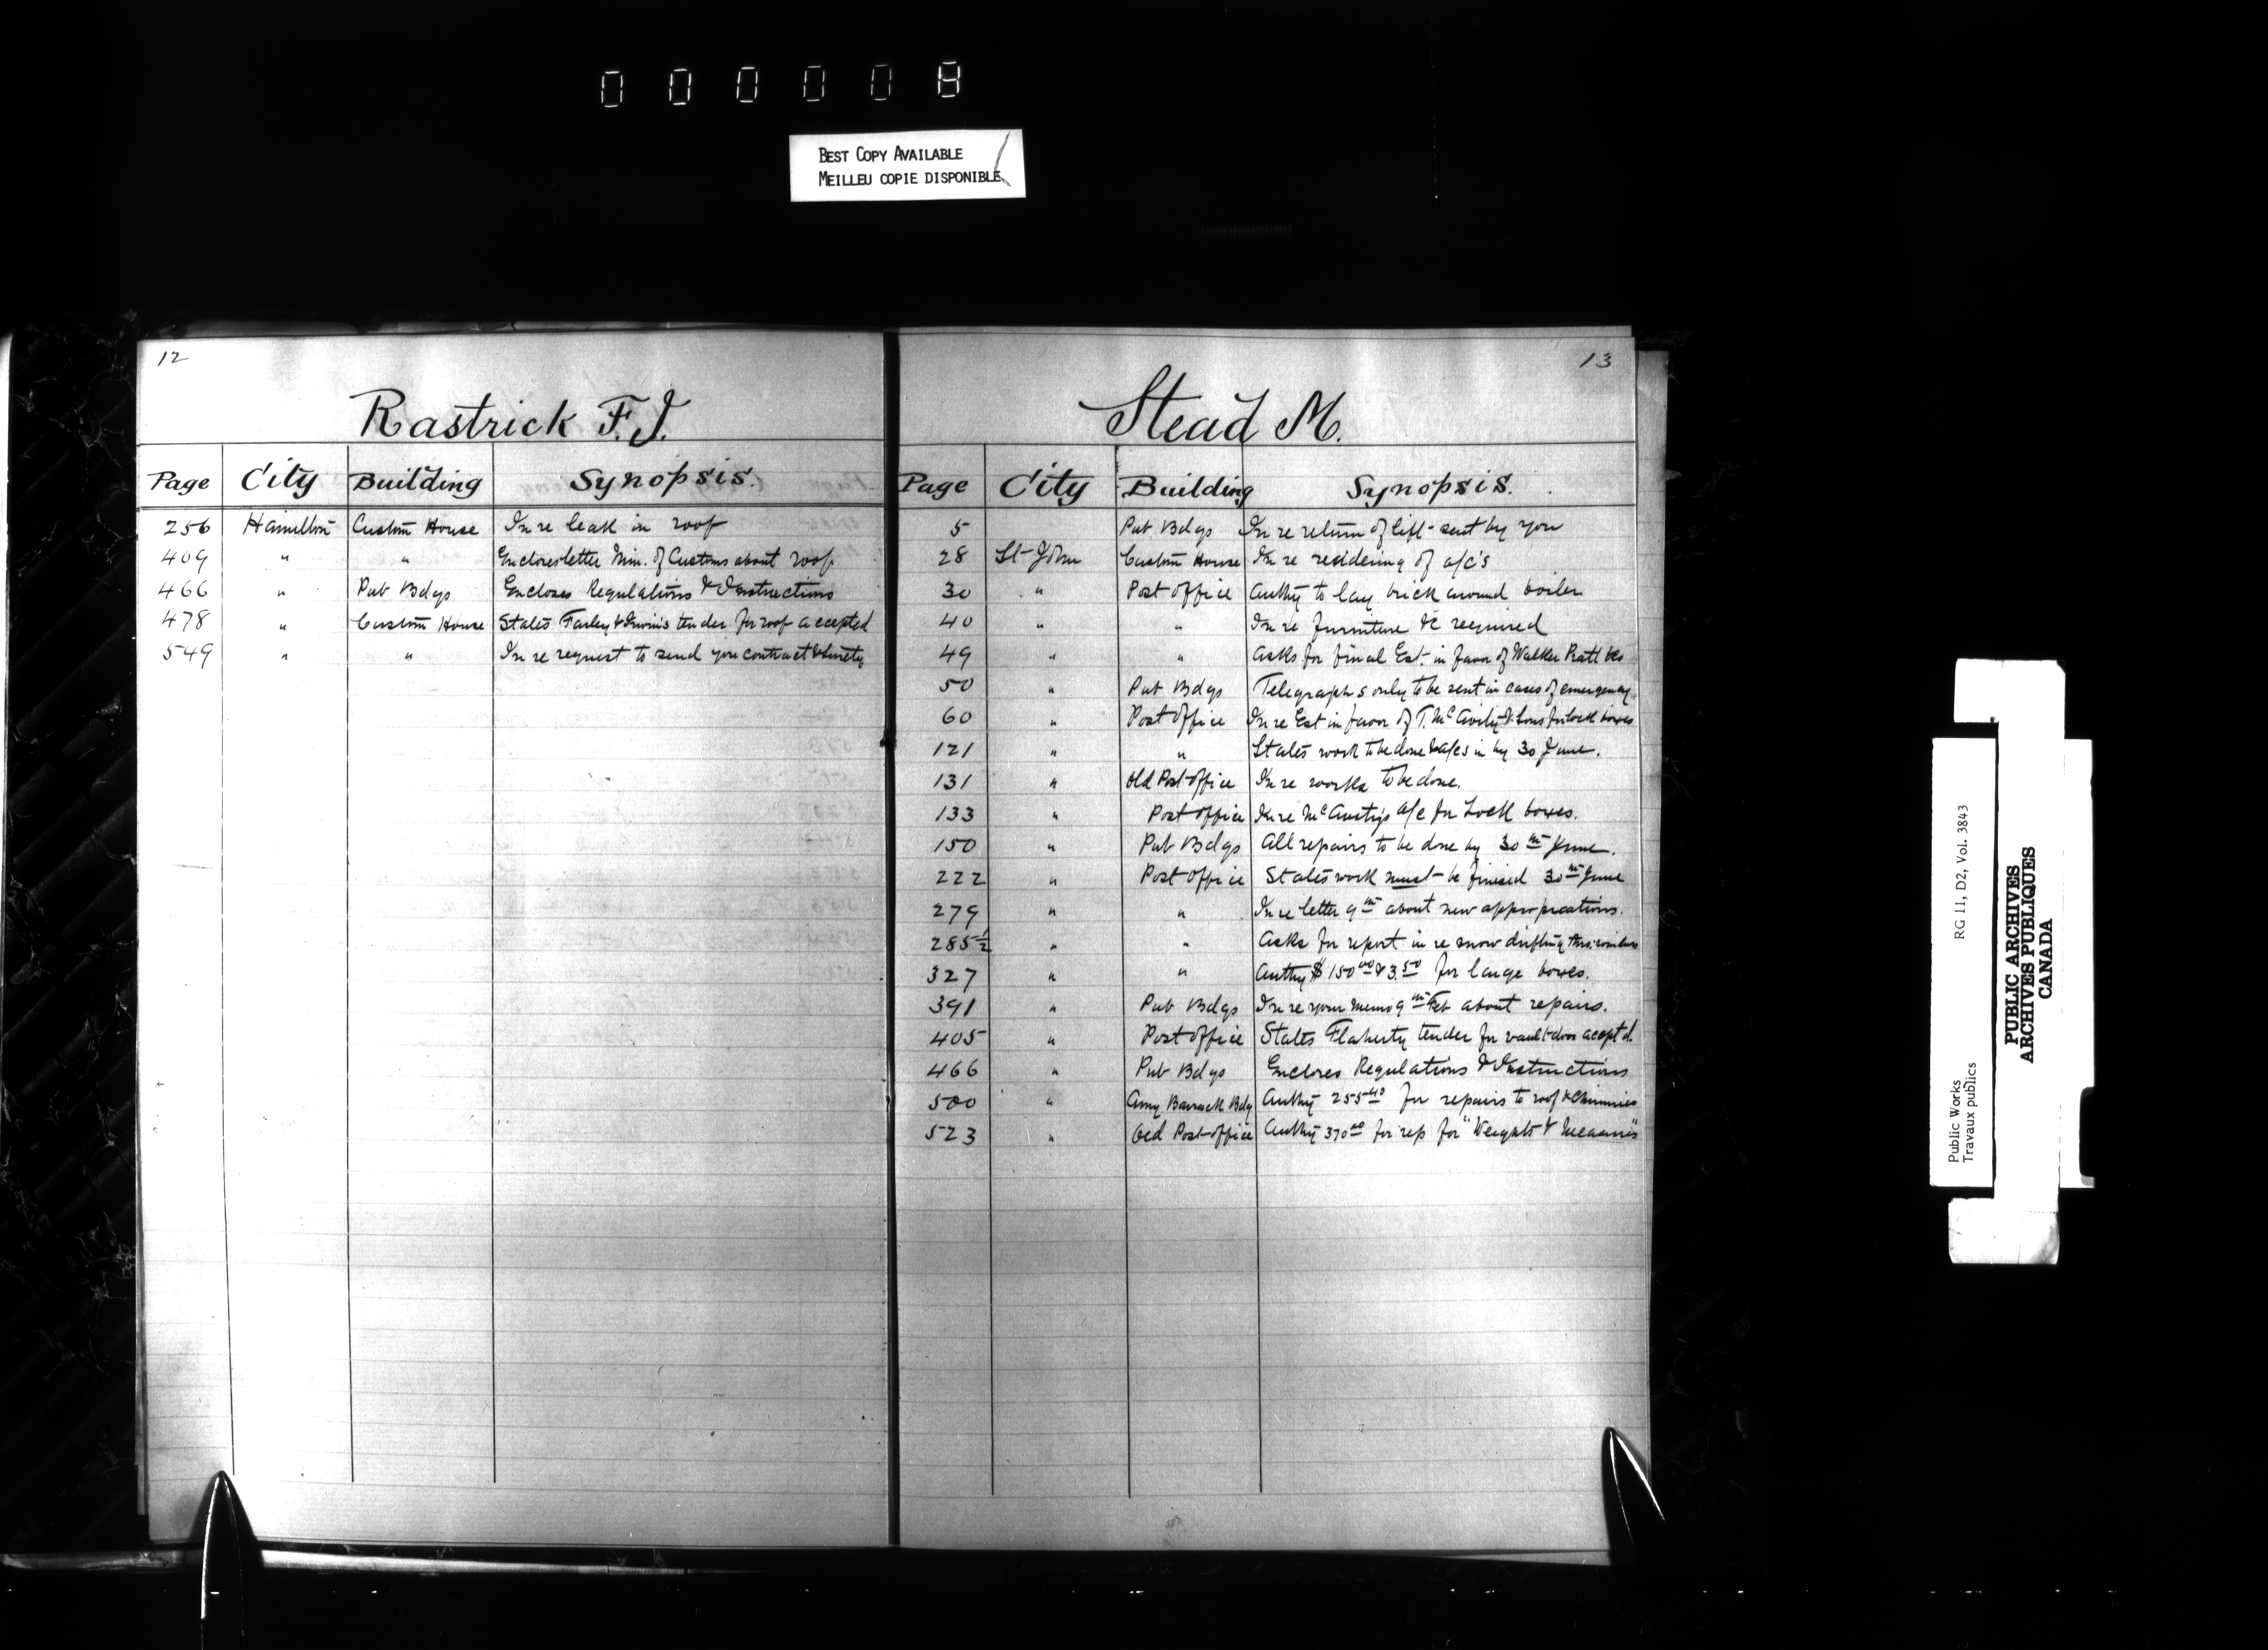 000008
BEST COPY AVAILABLE
MEILLEU COPIE DISPONIBLE
12
Rastrick F.J.
Page City Building Synopsis.
256 Hamilton Custom House In re leak in roof
409 " " Encloses letter Min. of Customs about roof
466 " Pub Bdgs Encloses Regulations & Instructions
478 " Custom House States Farley & Irwin's tender for roof accepted
549 " " In re request to send you contract & surety
13
Stead M.
Page City Building Synopsis.
5 Pub. Bdgs In re return of lift sent by you
28 St John Custom House In re rendering of a/c's
30 " Post office Authy to lay brick around boiler
40 " " In re furniture &c required
49 " " Asks for final Est. in favor of Walker Pratt &co
50 " Pub Bdgs Telegraphs only to be sent in cases of emergency
60 " Post office In re Est in favor of T. McAvity & Sons for lock boxes
121 " " States work to be done & a/cs in by 30 June.
131 " Old Post office In re works to be done.
133 " Post office In re McAvity's a/c for Lock boxes.
150 " Pub Bdgs All repairs to be done by 30th June.
222 " Post office States work must be finised 30th June
279 " " In re letter 9th about new appropriations.
285½ " " Asks for report in re snow drifting thro.
327 " " Authy $150.00 & 3.50 for large boxes.
391 " Pub Bdgs In re your memo 9th Feb about repairs.
405 " Post office States Flaherty tender for vault door accept d.
466 " Pub Bdgs Encloses Regulations & Instructions
500 " Army Barrack Bdg Authy 255.40 for repairs to roof & Chimnies
523 " Old Post office Authy 370.00 for rep for "Weights & Measures"
Public Works
Travaux publics
RG 11, D2, Vol. 3843
PUBLIC ARCHIVES
ARCHIVES PUBLIQUES
CANADA